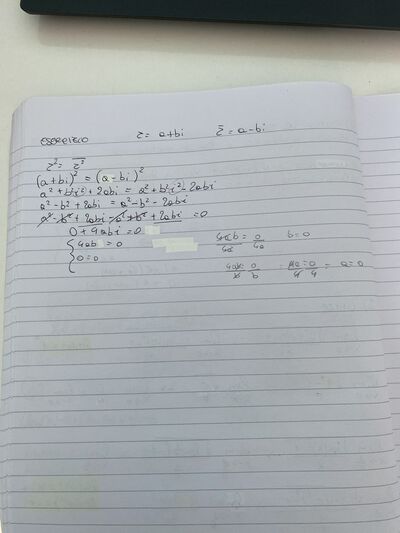 ESERCIZIO z = a+bi z̄ = a-bi
z² = z̄²
(a+bi)² = (a-bi)²
a²+b²i²+2abi = a²+b²i²-2abi
a²-b²+2abi = a²-b²-2abi
a²-b²+2abi-a²+b²+2abi = 0
0+4abi = 0
{4ab = 0 4ab/4a = 0/4a b=0
0=0
4ab/b = 0/b 4a/4 = 0/4 = a=0